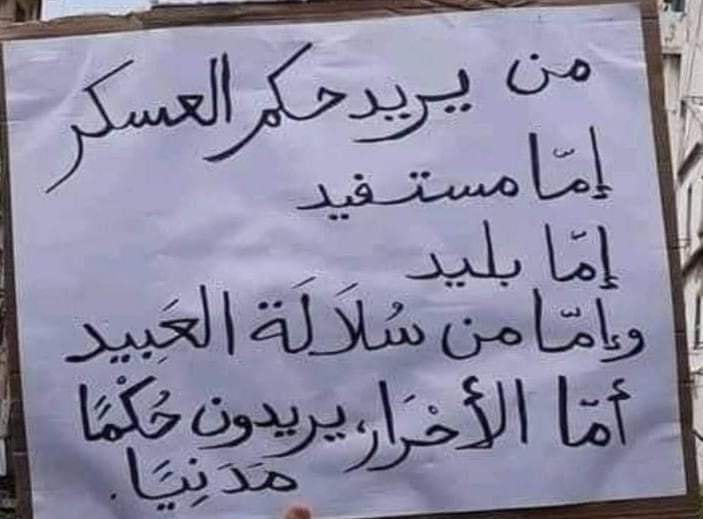 من يريد حكم العسكر
إمّا مستفيد
إمّا بليد
وإمّا من سُلَالَة العَبِيد
أمّا الأحْرَار، يريدون حُكْمًا
مَدَنِيَا.